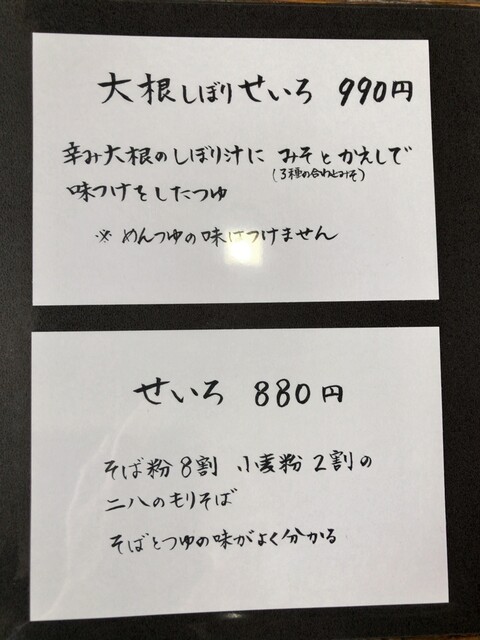 大根しぼりせいろ 990円
辛み大根のしぼり汁に みそとかえしで
(3種の合わせみそ)
味つけをしたつゆ
※ めんつゆの味はつけません
せいろ 880円
そば粉8割 小麦粉2割の
二八のもりそば
そばとつゆの味がよく分かる